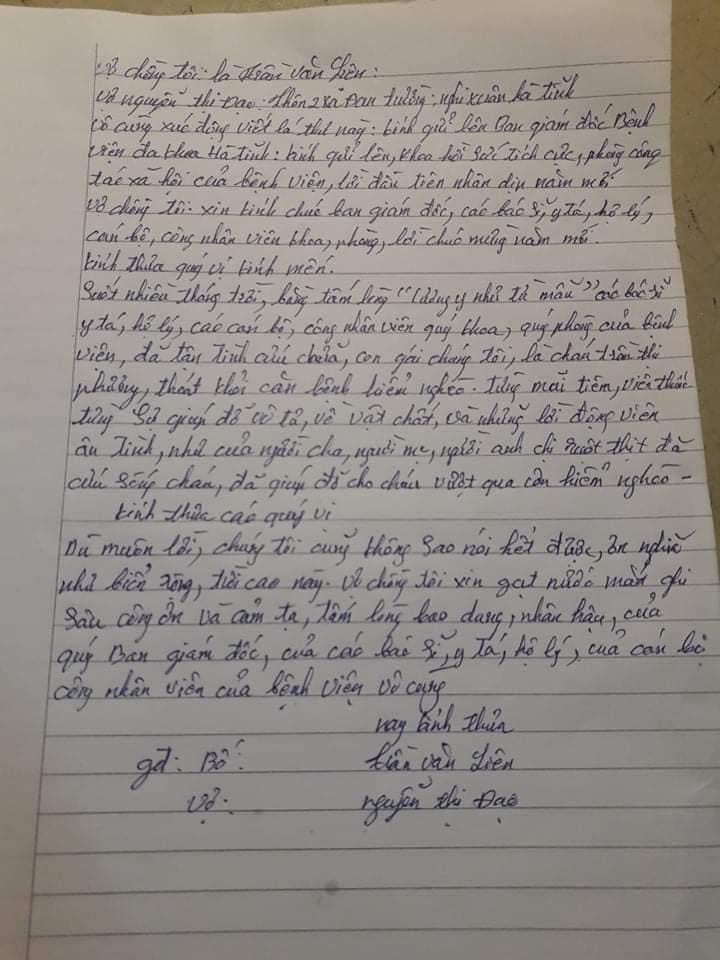 Vợ chồng tôi: là trần văn Liên:
Vợ nguyễn thị Đạo: thôn 2 xã Đan trường: nghi xuân hà tĩnh
vô cùng xúc động viết lá thư này: kính gửi lên Ban giám đốc Bênh
viện đa khoa Hà tĩnh: kính gửi lên, khoa hồi sức tích cực, phòng công
tác xã hội của bệnh viện, lời đầu tiên nhân dịp năm mới
Vợ chồng tôi: xin kính chúc ban giám đốc, các bác sĩ, y tá, hộ lý,
cán bộ, công nhân viên khoa, phòng, lời chúc mừng năm mới.
kính thưa quý vị kính mến.
Suốt nhiều tháng trời, bằng tấm lòng "lương y như từ mẫu" các bác sĩ
y tá, hộ lý, các cán bộ, công nhân viên quý khoa, quý phòng của bênh
viên, đã tân tình cứu chữa, con gái chúng tôi, là cháu trần thị
phương, thoát khỏi căn bệnh hiểm nghèo. từng mũi tiêm, viên thuốc
từng sự giúp đỡ vô tư, về vật chất, và những lời động viên
ân tình, như của người cha, người mẹ, người anh chị ruột thịt đã
cứu sống cháu, đã giúp đỡ cho cháu vượt qua cơn hiểm nghèo -
kính thưa các quý vị
Dù muôn lời, chúng tôi cũng không sao nói hết được, ơn nghĩa
như biển rộng, trời cao này. vợ chồng tôi xin gạt nước mắt ghi
sâu công ơn và cảm tạ, tấm lòng bao dung, nhân hậu, của
quý Ban giám đốc, của các bác sĩ, y tá, hộ lý, của cán bộ
công nhân viên của bệnh viện vô cùng
nay kính thưa
gđ: Bố: trần văn Liên
Vợ: nguyễn thị Đạo